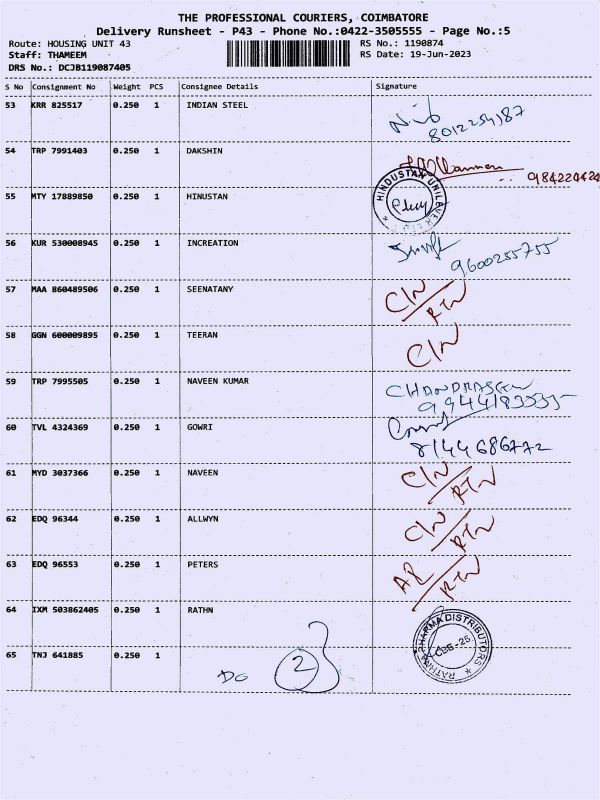 THE PROFESSIONAL COURIERS, COIMBATORE
Delivery Runsheet - P43 - Phone No.:0422-3505555 - Page No.:5
Route: HOUSING UNIT 43 RS No.: 1190874
Staff: THAMEEM RS Date: 19-Jun-2023
DRS No.: DCJB119087405
S No Consignment No Weight PCS Consignee Details Signature
53 KRR 825517 0.250 1 INDIAN STEEL
8012254187
54 TRP 7991403 0.250 1 DAKSHIN
984220424
55 MTY 17889850 0.250 1 HINUSTAN
HINDUSTAN UNILEVER LTD
56 KUR 530008945 0.250 1 INCREATION
9600255755
57 MAA 860489506 0.250 1 SEENATANY C/N
RTN
58 GGN 600009895 0.250 1 TEERAN C/N
59 TRP 7995505 0.250 1 NAVEEN KUMAR
9944183555
60 TVL 4324369 0.250 1 GOWRI
8144686772
61 MYD 3037366 0.250 1 NAVEEN C/N
RTN
62 EDQ 96344 0.250 1 ALLWYN C/N
RTN
63 EDQ 96553 0.250 1 PETERS
RTN
64 IXM 503862405 0.250 1 RATHN
PHARMA DISTRIBUTORS
CBE-25
65 TNJ 641885 0.250 1
DO 2